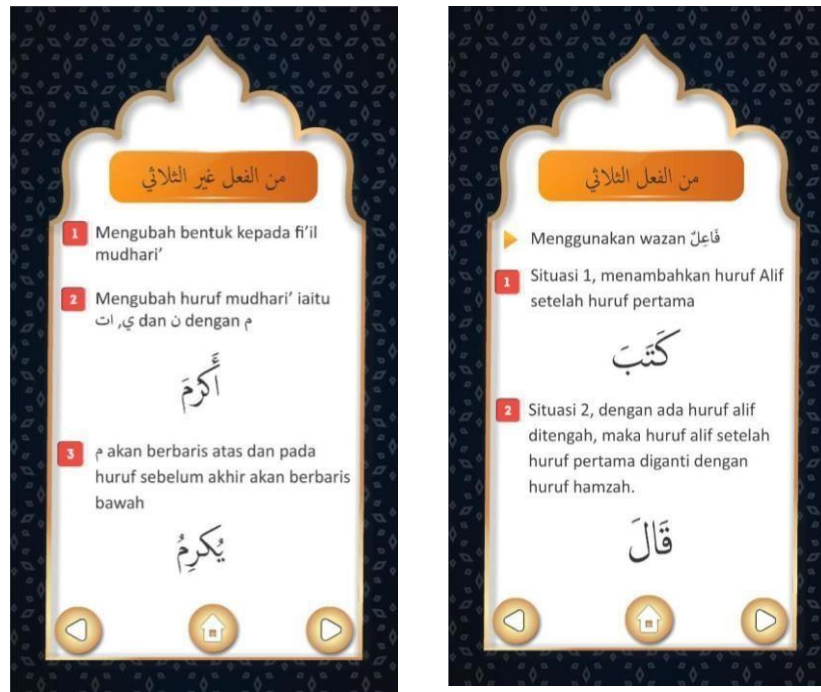 من الفعل غير الثلاثي
1 Mengubah bentuk kepada fi'il
mudhari'
2 Mengubah huruf mudhari' iaitu
ي, ات dan ن dengan م
أَكرَمَ
3 م akan berbaris atas dan pada
huruf sebelum akhir akan berbaris
bawah
يُكرِمُ
من الفعل الثلاثي
Menggunakan wazan فَاعِلٌ
1 Situasi 1, menambahkan huruf Alif
setelah huruf pertama
كَتَبَ
2 Situasi 2, dengan ada huruf alif
ditengah, maka huruf alif setelah
huruf pertama diganti dengan
huruf hamzah.
قَالَ